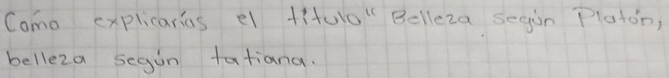 Como explicarías el titulo" Belleza según Platón,
belleza según tatiana.